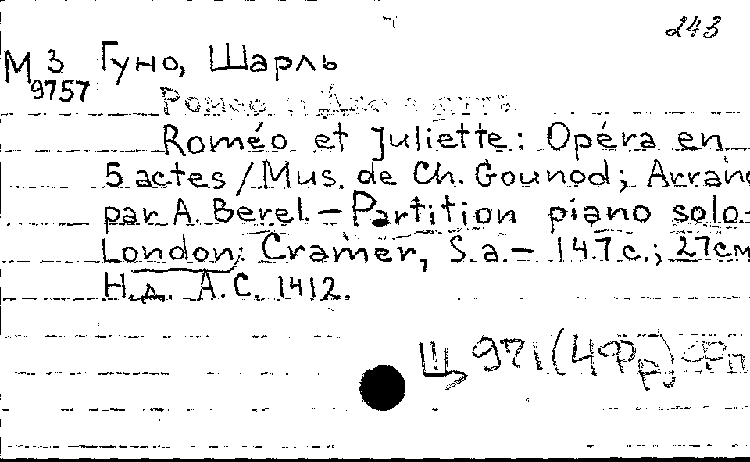 243
М 3 Гуно, Шарль
9757
Ромео и Джульетта
Roméo et Juliette: Opéra en
5 actes / Mus. de Ch. Gounod; Arrang
par A. Berel. – Partition piano solo.–
London: Cramer, S.a. – 147 с.; 27см
Н.д. A.C. 1412.
Щ 971(4Фр) Фп